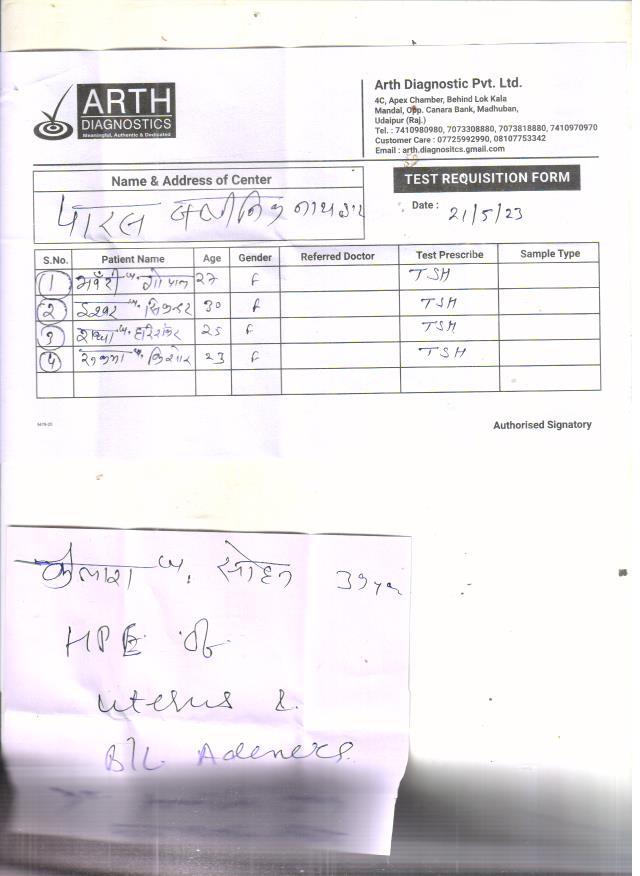 ARTH
DIAGNOSTICS
Meaningful, Authentic & Dedicated
Arth Diagnostic Pvt. Ltd.
4C, Apex Chamber, Behind Lok Kala
Mandal, Opp. Canara Bank, Madhuban,
Udaipur (Raj.)
Tel. : 7410980980, 7073308880, 7073818880, 7410970970
Customer Care : 07725992990, 08107753342
Email : arth.diagnositcs.gmail.com
Name & Address of Center
पारस क्लीनिक नाथद्वारा
TEST REQUISITION FORM
Date : 21/5/23
S.No. Patient Name Age Gender Referred Doctor Test Prescribe Sample Type
1 w. गोपाल 27 F TSH
2 w. 30 F TSH
3 w. हरिशंकर 25 F TSH
4 w. किशोर 23 F TSH
Authorised Signatory
कैलाश w. सोहन 39 yr
HPE of
uterus &
B/L Adenexa